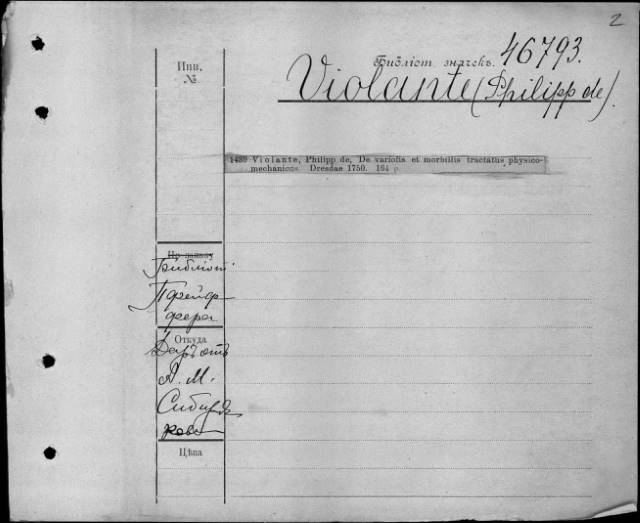 2
Инв.
№
Библіот. значекъ. 46793.
Violante (Philipp de).
1439 Violante, Philipp de, De variolis et morbillis tractatus physico-
mechanicus. Dresdae 1750. 164 p
По заказу
Прейф
фера
Откуда
Даръ отъ
А. М.
Сибиря
кова
Цѣна